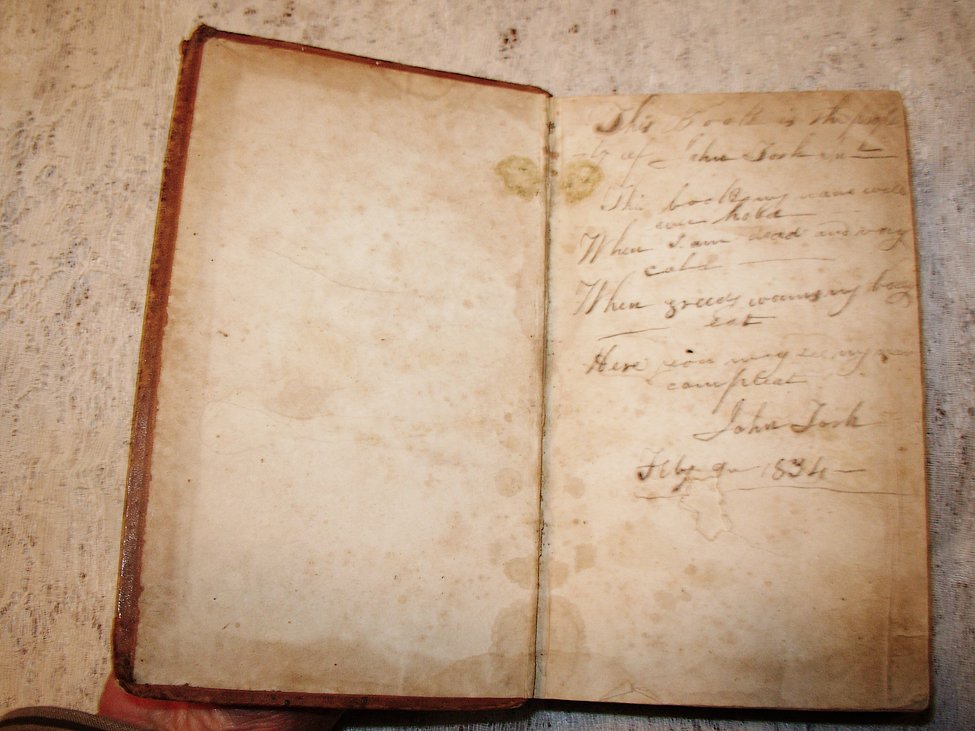 This Book is the prope
ty of John Tosh
This book my name will
ever hold
When I am dead and
cold
When greedy worms my body
Eat
Here you may see my name
compleat
John Tosh
Feby 9 1834